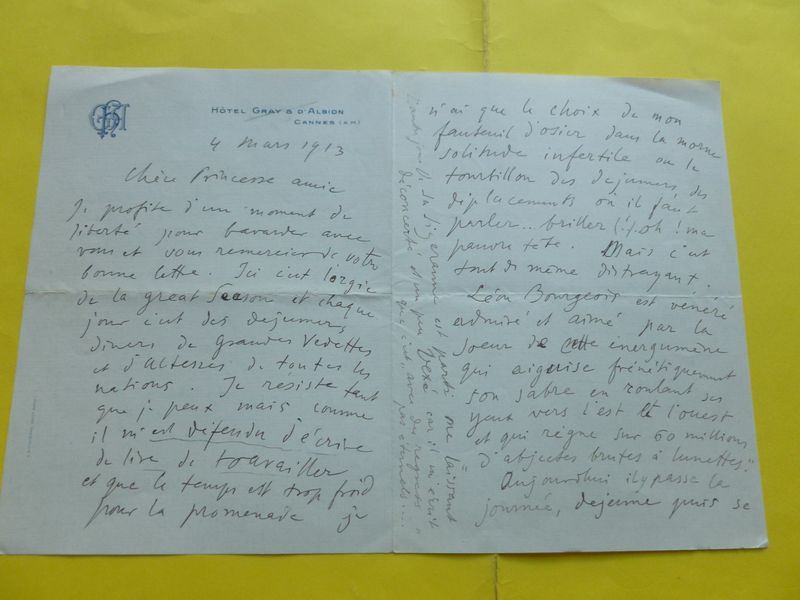 HÔTEL GRAY & D'ALBION
CANNES (A.M.)
4 mars 1913
Chère Princesse amie
Je profite d'un moment de
liberté pour bavarder avec
vous et vous remercier de votre
bonne lettre. Ici c'est l'orgie
de la great Season et chaque
jour c'est des dejeuners,
diners de Grandes Vedettes
et d'Altesses de toutes les
nations. Je resiste tant
que je peux mais comme
il m'est défendu d'écrire
de lire de travailler
et que le temps est trop froid
pour la promenade je
n'ai que le choix de mon
fauteuil d'osier dans la morne
solitude infertile ou le
tourbillon des dejeuners, des
déplacements où il faut
parler... briller (!) oh! ma
pauvre tête. Mais c'est
tout de même distrayant.
Léon Bourgeois est vénéré
admiré et aimé par la
soeur de cette énergumène
qui aiguise frénétiquement
son sabre en roulant ses
yeux vers l'est et l'ouest
et qui règne sur 60 millions
d'abjectes brutes à lunettes."
Aujourd'hui il y passe la
journée, dejeune puis se
est parti me laissant
déconcerté et un peu vexé car il m'écrit
que c'est avec des regrets
pas éternels....